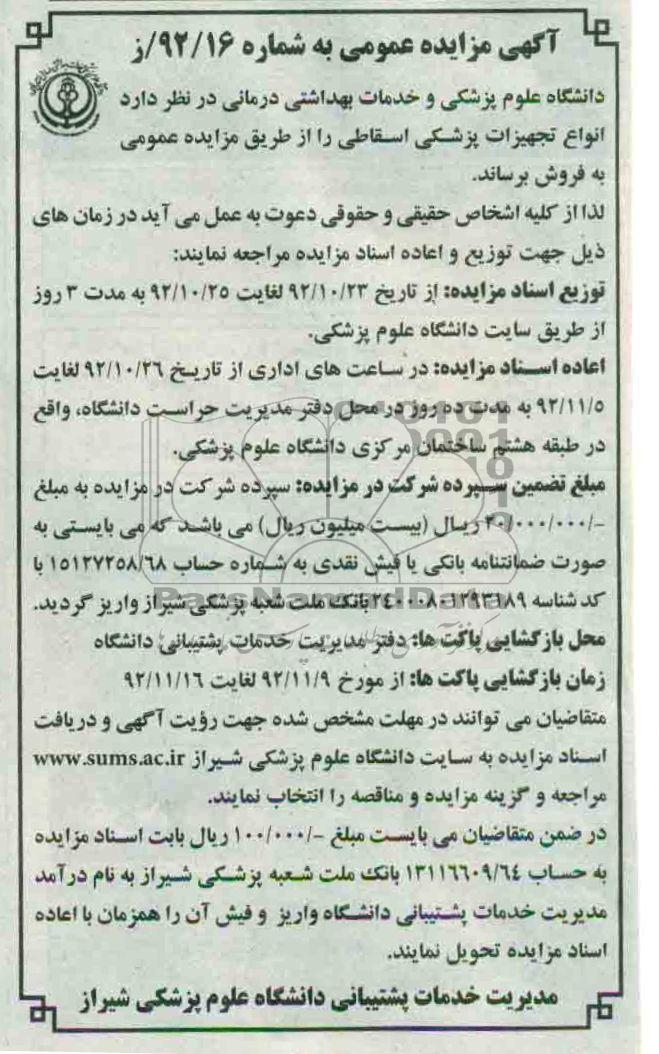 آگهی مزایده عمومی به شماره ۹۲/۱۶/ز
دانشگاه علوم پزشکی و خدمات بهداشتی درمانی در نظر دارد
انواع تجهیزات پزشکی اسقاطی را از طریق مزایده عمومی
به فروش برساند.
لذا از کلیه اشخاص حقیقی و حقوقی دعوت به عمل می آید در زمان های
ذیل جهت توزیع و اعاده اسناد مزایده مراجعه نمایند:
توزیع اسناد مزایده: از تاریخ ۹۲/۱۰/۲۳ لغایت ۹۲/۱۰/۲۵ به مدت ۳ روز
از طریق سایت دانشگاه علوم پزشکی.
اعاده اسناد مزایده: در ساعت های اداری از تاریخ ۹۲/۱۰/۲۶ لغایت
۹۲/۱۱/۵ به مدت ده روز در محل دفتر مدیریت حراست دانشگاه، واقع
در طبقه هشتم ساختمان مرکزی دانشگاه علوم پزشکی.
مبلغ تضمین سپرده شرکت در مزایده: سپرده شرکت در مزایده به مبلغ
-/۲۰/۰۰۰/۰۰۰ ریال (بیست میلیون ریال) می باشد که می بایستی به
صورت ضمانتنامه بانکی یا فیش نقدی به شماره حساب ۱۵۱۲۷۲۵۸/۶۸ با
کد شناسه بانک ملت شعبه پزشکی شیراز واریز گردید.
محل بازگشایی پاکت ها: دفتر مدیریت خدمات پشتیبانی دانشگاه
زمان بازگشایی پاکت ها: از مورخ ۹۲/۱۱/۹ لغایت ۹۲/۱۱/۱۶
متقاضیان می توانند در مهلت مشخص شده جهت رؤیت آگهی و دریافت
اسناد مزایده به سایت دانشگاه علوم پزشکی شیراز www.sums.ac.ir
مراجعه و گزینه مزایده و مناقصه را انتخاب نمایند.
در ضمن متقاضیان می بایست مبلغ -/۱۰۰/۰۰۰ ریال بابت اسناد مزایده
به حساب ۱۳۱۱۶۶۰۹/۶۴ بانک ملت شعبه پزشکی شیراز به نام درآمد
مدیریت خدمات پشتیبانی دانشگاه واریز و فیش آن را همزمان با اعاده
اسناد مزایده تحویل نمایند.
مدیریت خدمات پشتیبانی دانشگاه علوم پزشکی شیراز
ParsNamadData